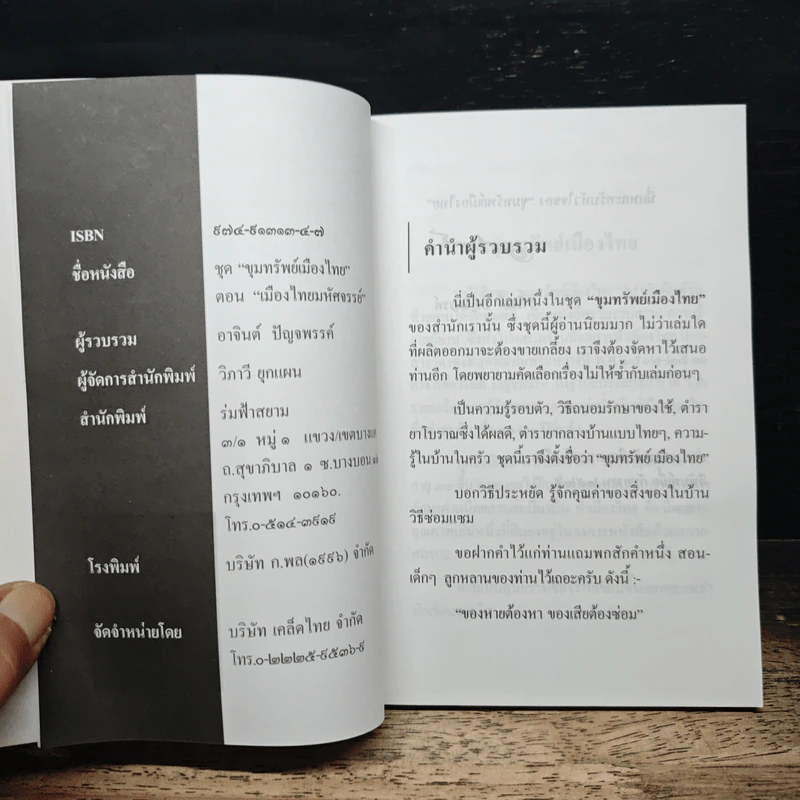 ISBN ๙๗๔-๙๑๓๑๓-๔-๗
ชื่อหนังสือ ชุด “ขุมทรัพย์เมืองไทย”
ตอน “เมืองไทยมหัศจรรย์”
ผู้รวบรวม อาจินต์ ปัญจพรรค์
ผู้จัดการสำนักพิมพ์ วิภาวี ยุกแผน
สำนักพิมพ์ ร่มฟ้าสยาม
๓/๑ หมู่ ๑ แขวง/เขตบางแค
ถ.สุขาภิบาล ๑ ซ.บางบอน
กรุงเทพฯ ๑๐๑๖๐.
โทร.๐-๕๑๔-๓๙๑๙
โรงพิมพ์ บริษัท ก.พล(๑๙๙๖) จำกัด
จัดจำหน่ายโดย บริษัท เคล็ดไทย จำกัด
โทร.๐-๒๒๒๕-๙๕๓๖-๙
คำนำผู้รวบรวม
นี่เป็นอีกเล่มหนึ่งในชุด “ขุมทรัพย์เมืองไทย”
ของสำนักเรานั้น ซึ่งชุดนี้ผู้อ่านนิยมมาก ไม่ว่าเล่มใด
ที่ผลิตออกมาจะต้องขายเกลี้ยง เราจึงต้องจัดหาไว้เสนอ
ท่านอีก โดยพยายามคัดเลือกเรื่องไม่ให้ซ้ำกับเล่มก่อนๆ
เป็นความรู้รอบตัว, วิธีถนอมรักษาของใช้, ตำรา
ยาโบราณซึ่งได้ผลดี, ตำรายากลางบ้านแบบไทยๆ, ความ-
รู้ในบ้านในครัว ชุดนี้เราจึงตั้งชื่อว่า “ขุมทรัพย์ เมืองไทย”
บอกวิธีประหยัด รู้จักคุณค่าของสิ่งของในบ้าน
วิธีซ่อมแซม
ขอฝากคำไว้แก่ท่านแถมพกสักคำหนึ่ง สอน-
เด็กๆ ลูกหลานของท่านไว้เถอะครับ ดังนี้ :-
“ของหายต้องหา ของเสียต้องซ่อม”